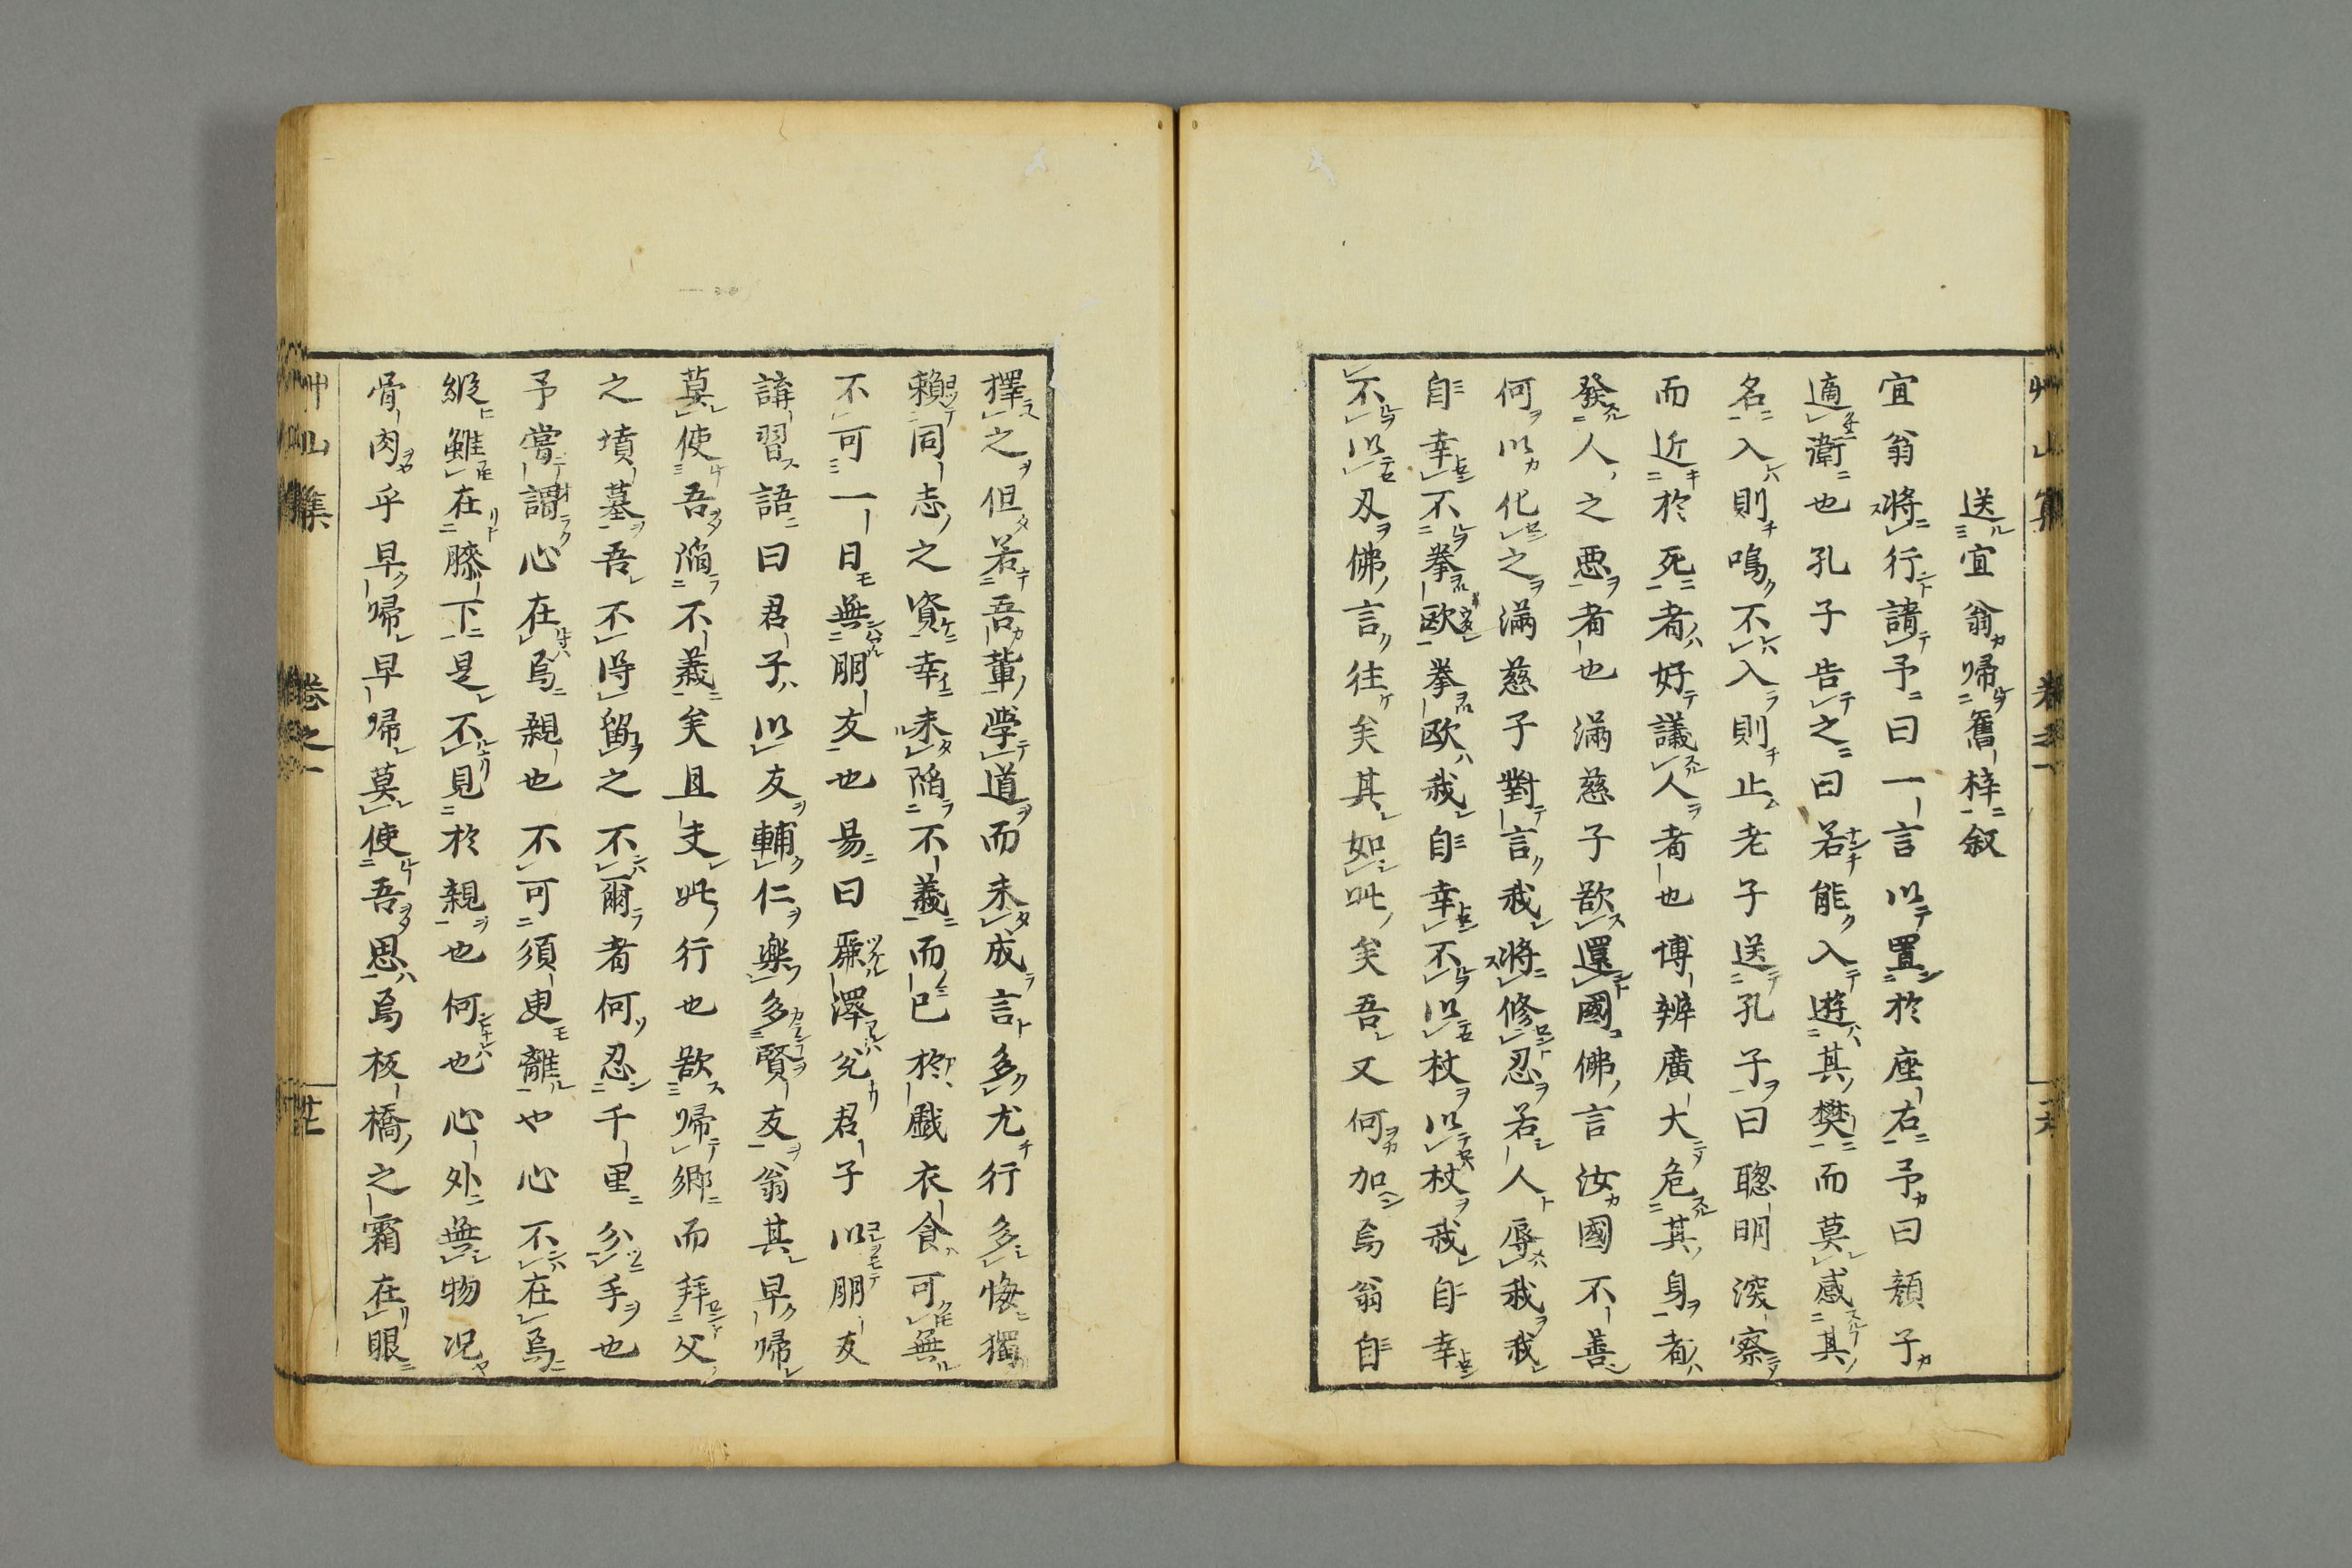 送宜翁帰舊梓叙
宜翁將行請予曰一言以置於座右予曰顏子
適衛也孔子告之曰若能入遊其樊而莫感其
名入則鳴不入則止老子送孔子曰聰明深察
而近於死者好議人者也博辨廣大危其身者
發人之惡者也滿慈子欲還國佛言汝國不善
何以化之滿慈子對言我將修忍若人辱我我
自幸不拳歐拳歐我自幸不以杖以杖我自幸
不以刄佛言往矣其如此矣吾又何加焉翁自
擇之但若吾輩学道而未成言多尤行多悔獨
賴同志之資幸未陥不義而已於戲衣食可無
不可一日無朋友也易曰麗澤兌君子以朋友
講習語曰君子以友輔仁樂多賢友翁其早帰
莫使吾陥不義矣且夫此行也欲帰郷而拜父
之墳墓吾不得留之不爾者何忍千里分手也
予嘗謂心在焉親也不可須臾離や心不在焉
縱雖在膝下是不見於親也何也心外無物况
骨肉乎早帰早帰莫使吾思焉板橋之霜在眼
艸山集 卷之一 廿